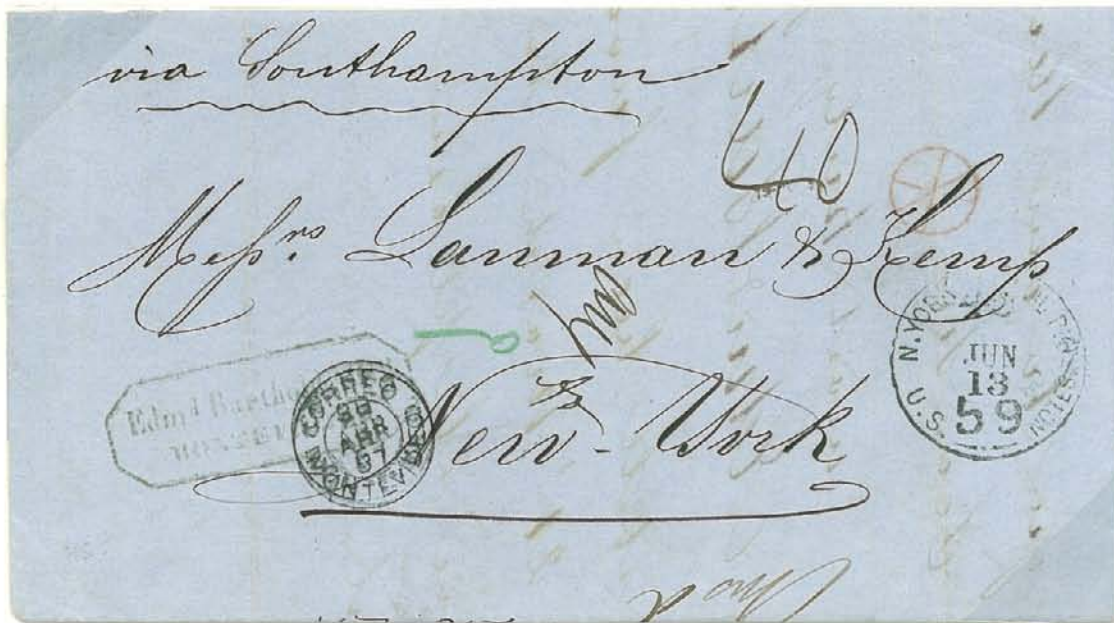 via Southampton
40
Messrs. Lanman & Kemp
New-York
Edmd Barth
CORREO
28
ABR
67
MONTEVIDEO
N. YORK
JUN
13
59
U.S. NOTES